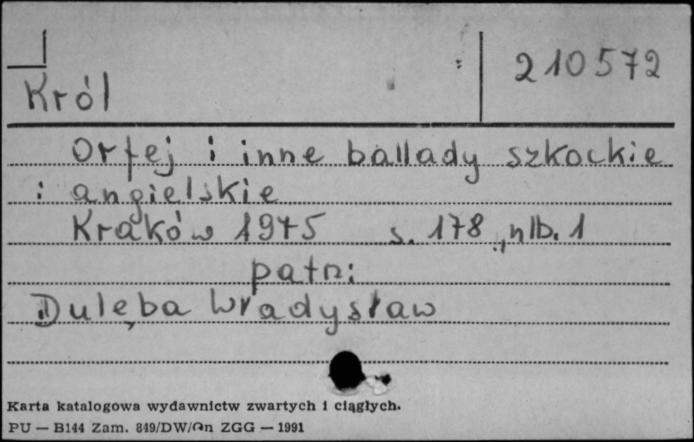 210572
Król
Orfej i inne ballady szkockie
i angielskie
Kraków 1975 s. 178, nlb. 1
patrz:
Dulęba Władysław
Karta katalogowa wydawnictw zwartych i ciągłych.
PU — B144 Zam. 849/DW/Gn ZGG — 1991